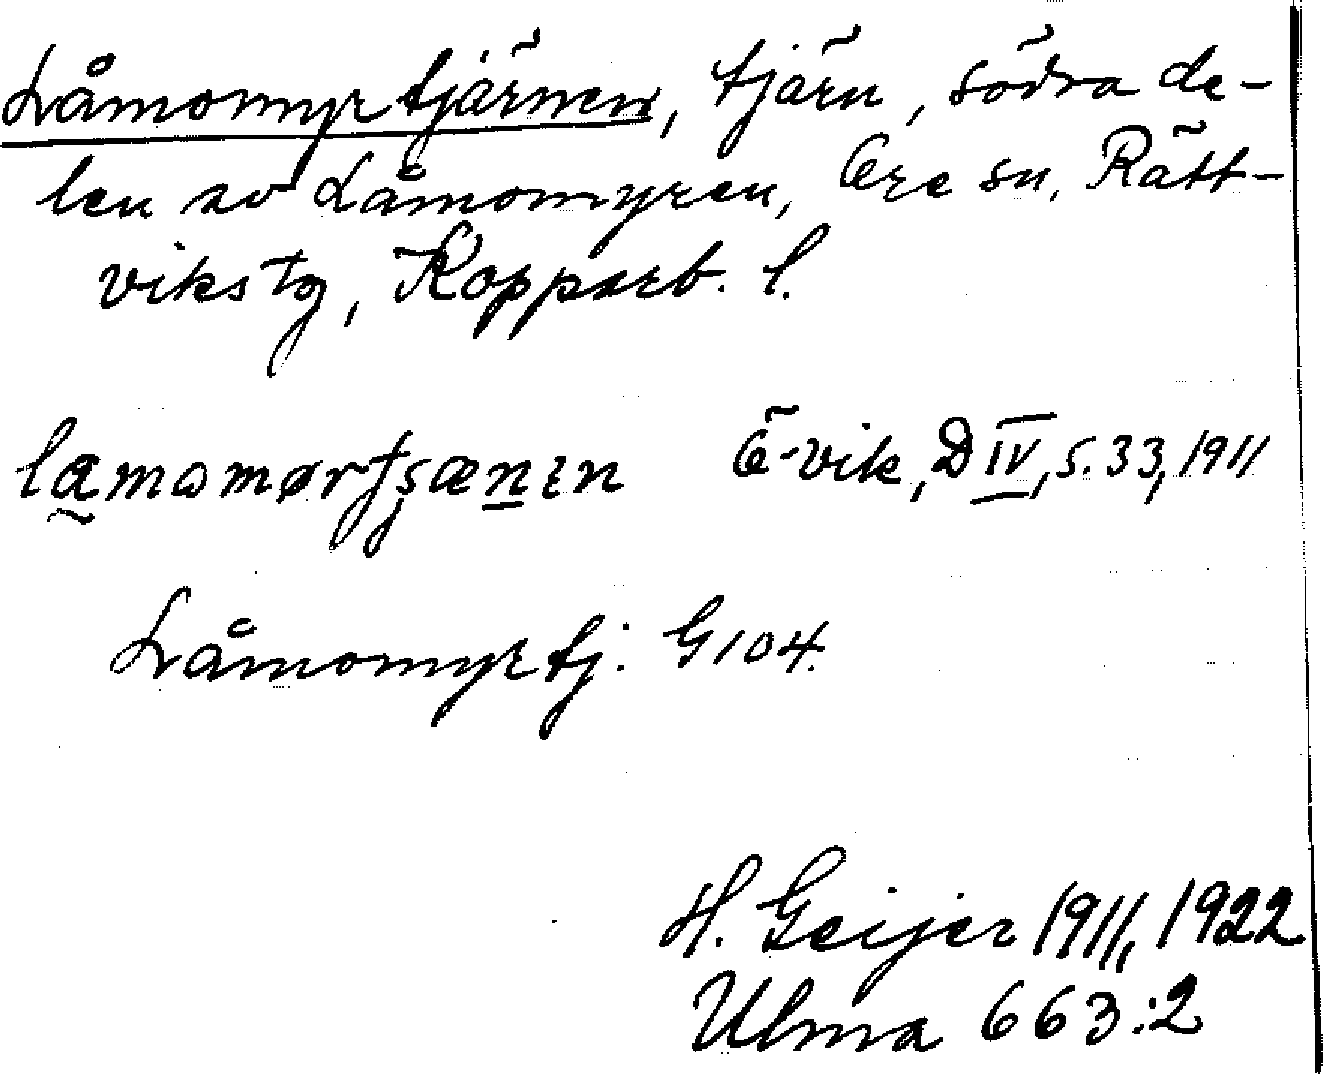 Låmomyrtjärnen, tjärn, södra de-
len av Låmomyren, Ore sn, Rätt-
viks tg, Kopparb. l.
Ö-vik, D IV, s. 33, 1911
Låmomyrtj. G104.
H. Geijer 1911, 1922
Ulma 663:2